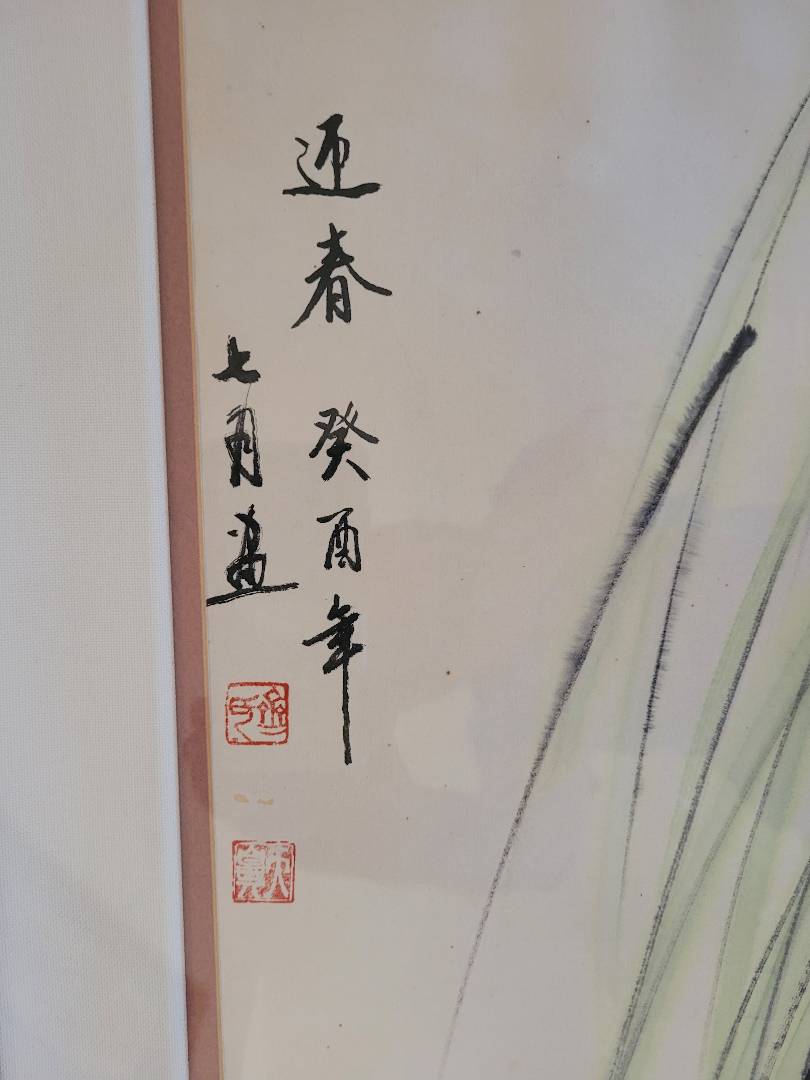 迎春 癸酉年
七月畫